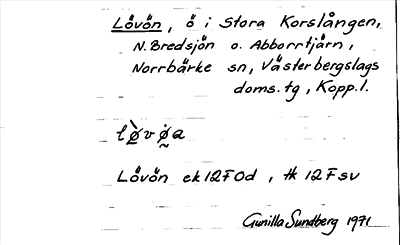 Lövön, ö i Stora Korslången,
N. Bredsjön o. Abborrtjärn,
Norrbärke sn, Västerbergslags
doms.tg, Kopp.l.
Lövön ek 12F0d, tk 12F sv
Gunilla Sundberg 1971